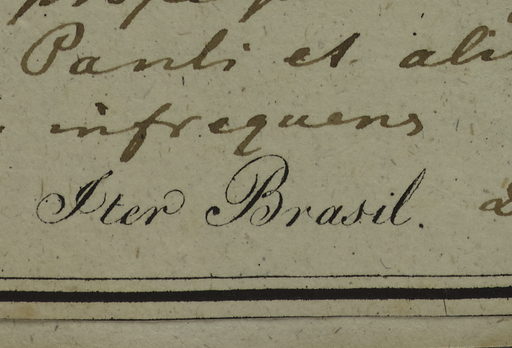 Pauli et ali
infrequens
Iter Brasil.